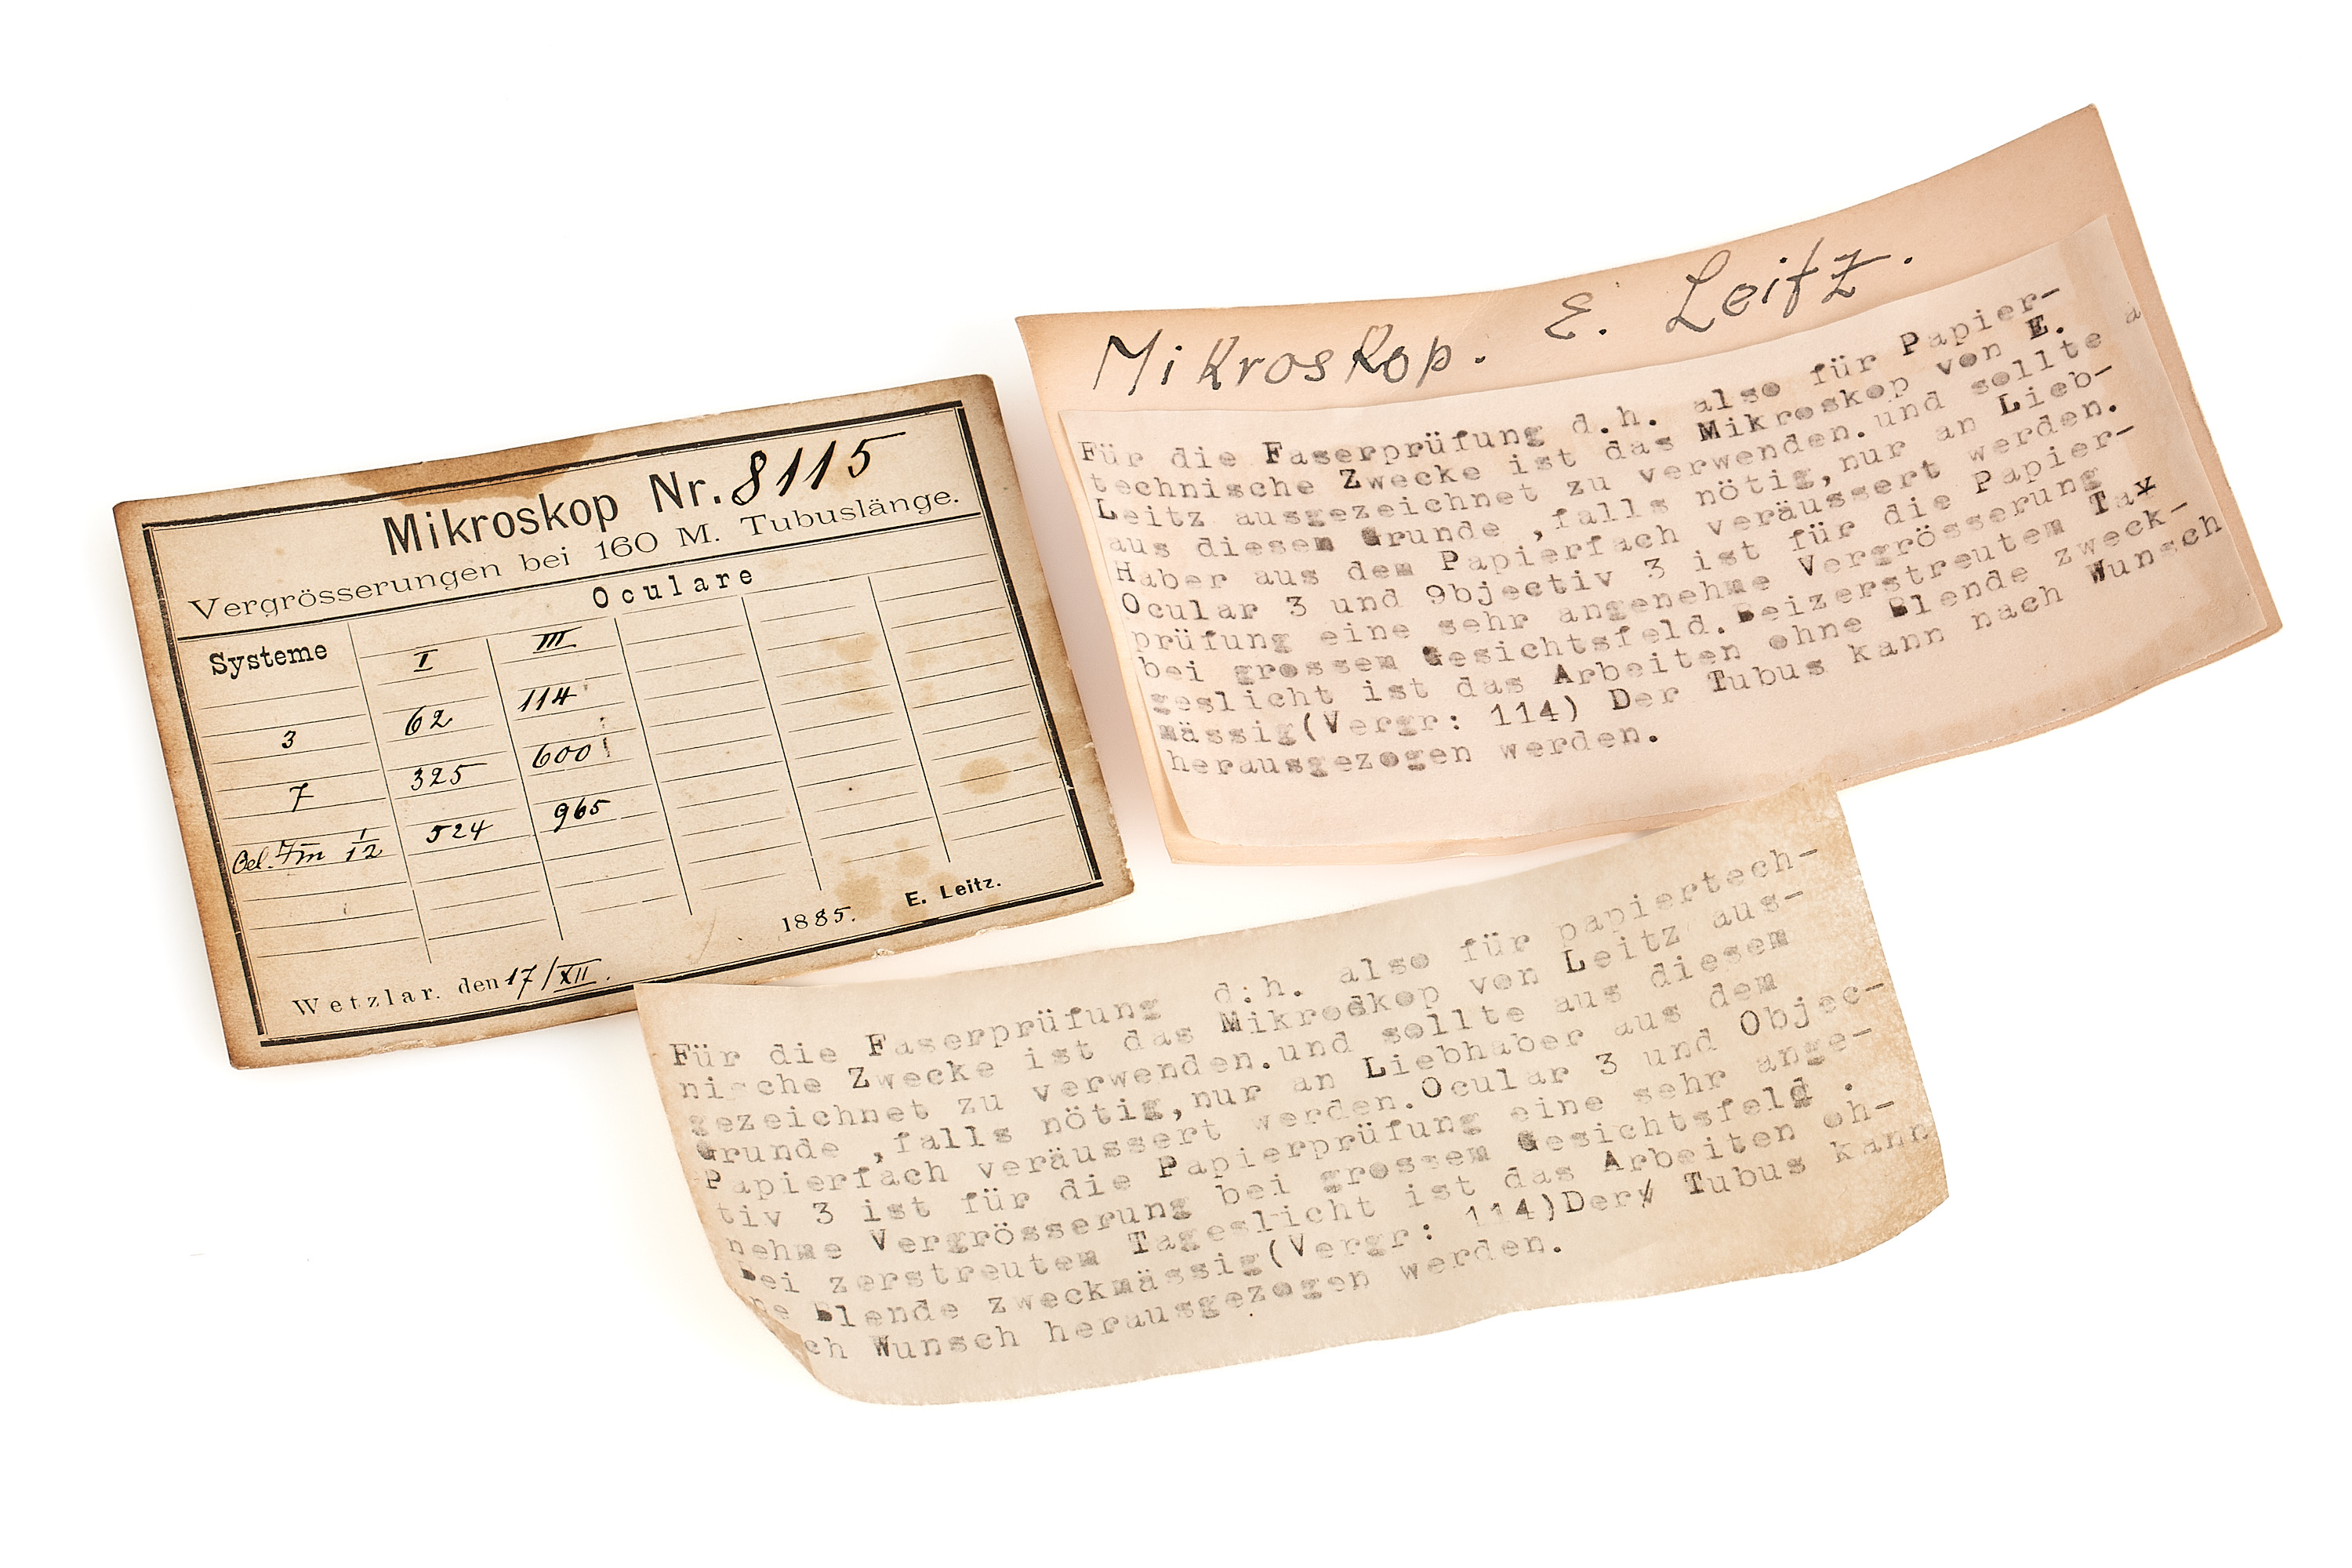 Mikroskop Nr. 8115
Vergrösserungen bei 160 M. Tubuslänge.
Systeme Oculare
I III
3 62 114
7 325 600
Oel. Im 1/12 524 965
Wetzlar. den 17/XII. 1885. E. Leitz.
Mikroskop. E. Leitz.
Für die Faserprüfung d.h. also für Papier-
technische Zwecke ist das Mikroskop von E.
Leitz ausgezeichnet zu verwenden.und sollte a
aus diesem Grunde ,falls nötig,nur an Lieb-
Haber aus dem Papierfach veräussert werden.
Ocular 3 und 9bjectiv 3 ist für die Papier-
prüfung eine sehr angenehme Vergrösserung
bei grossem Gesichtsfeld.Beizerstreutem Tax
geslicht ist das Arbeiten ohne Blende zweck-
mässig(Vergr: 114) Der Tubus kann nach Wunsch
herausgezogen werden.
Für die Faserprüfung d.h. also für papiertech-
nische Zwecke ist das Mikroskop von Leitz aus-
gezeichnet zu verwenden.und sollte aus diesem
Grunde ,falls nötig,nur an Liebhaber aus dem
Papierfach veräussert werden.Ocular 3 und Objec-
tiv 3 ist für die Papierprüfung eine sehr ange-
nehme Vergrösserung bei grossem Gesichtsfeld .
Bei zerstreutem Tageslicht ist das Arbeiten oh-
ne Blende zweckmässig(Vergr: 114)Der Tubus kann
ch Wunsch herausgezogen werden.